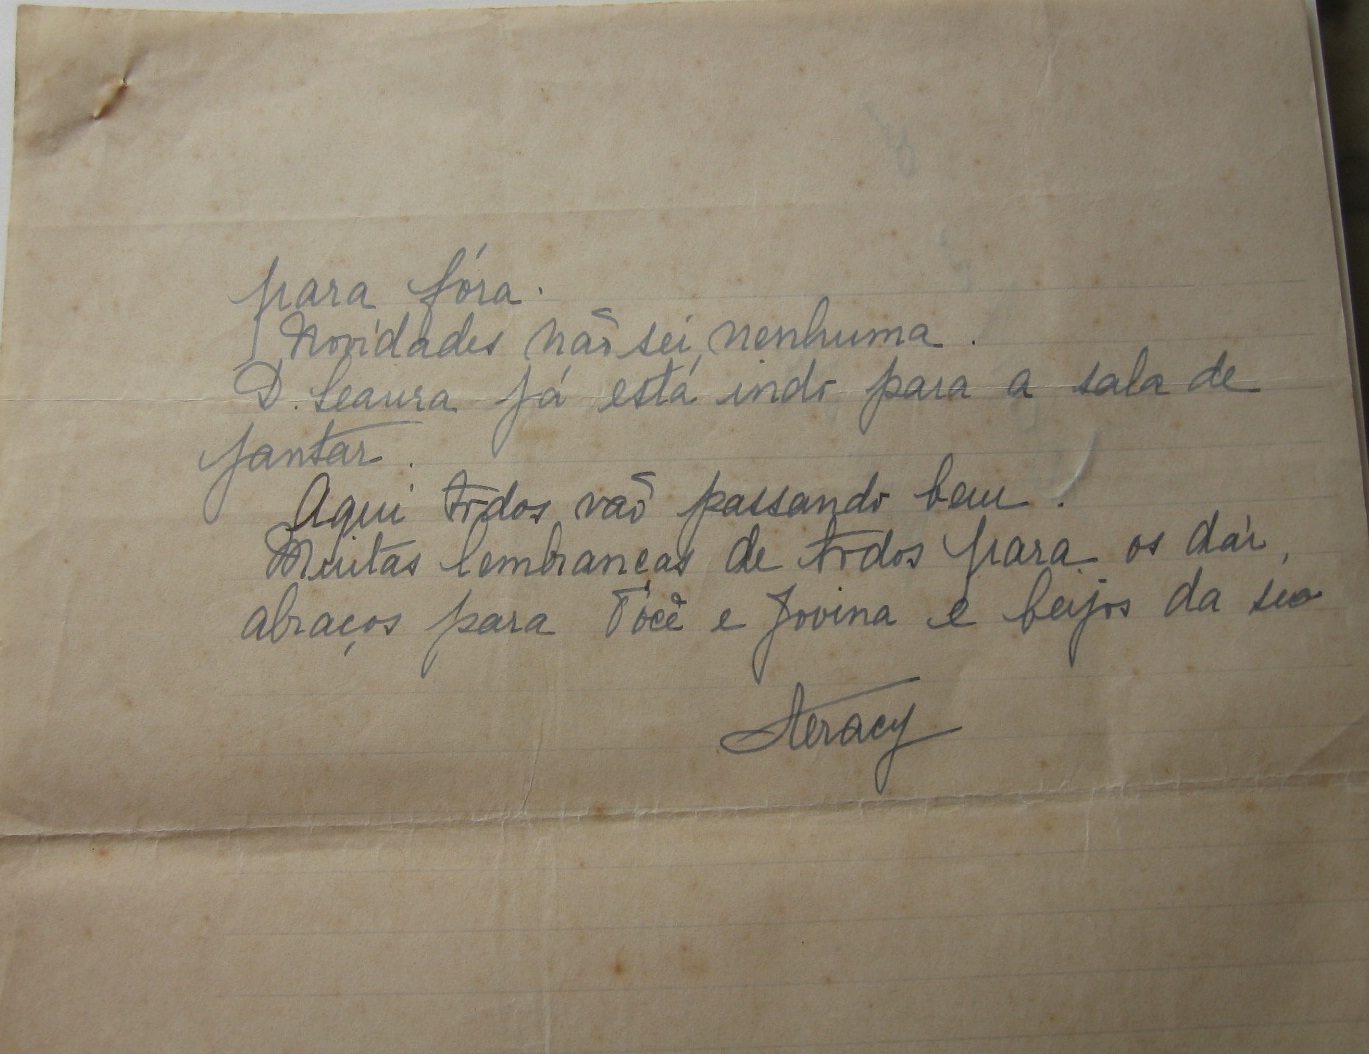 para fóra.
Novidades não sei nenhuma.
D. Leaura já está indo para a sala de
jantar.
Aqui todos vão passando bem.
Muitas lembranças de todos para os daí,
abraços para Você e Jovina e beijos da sua